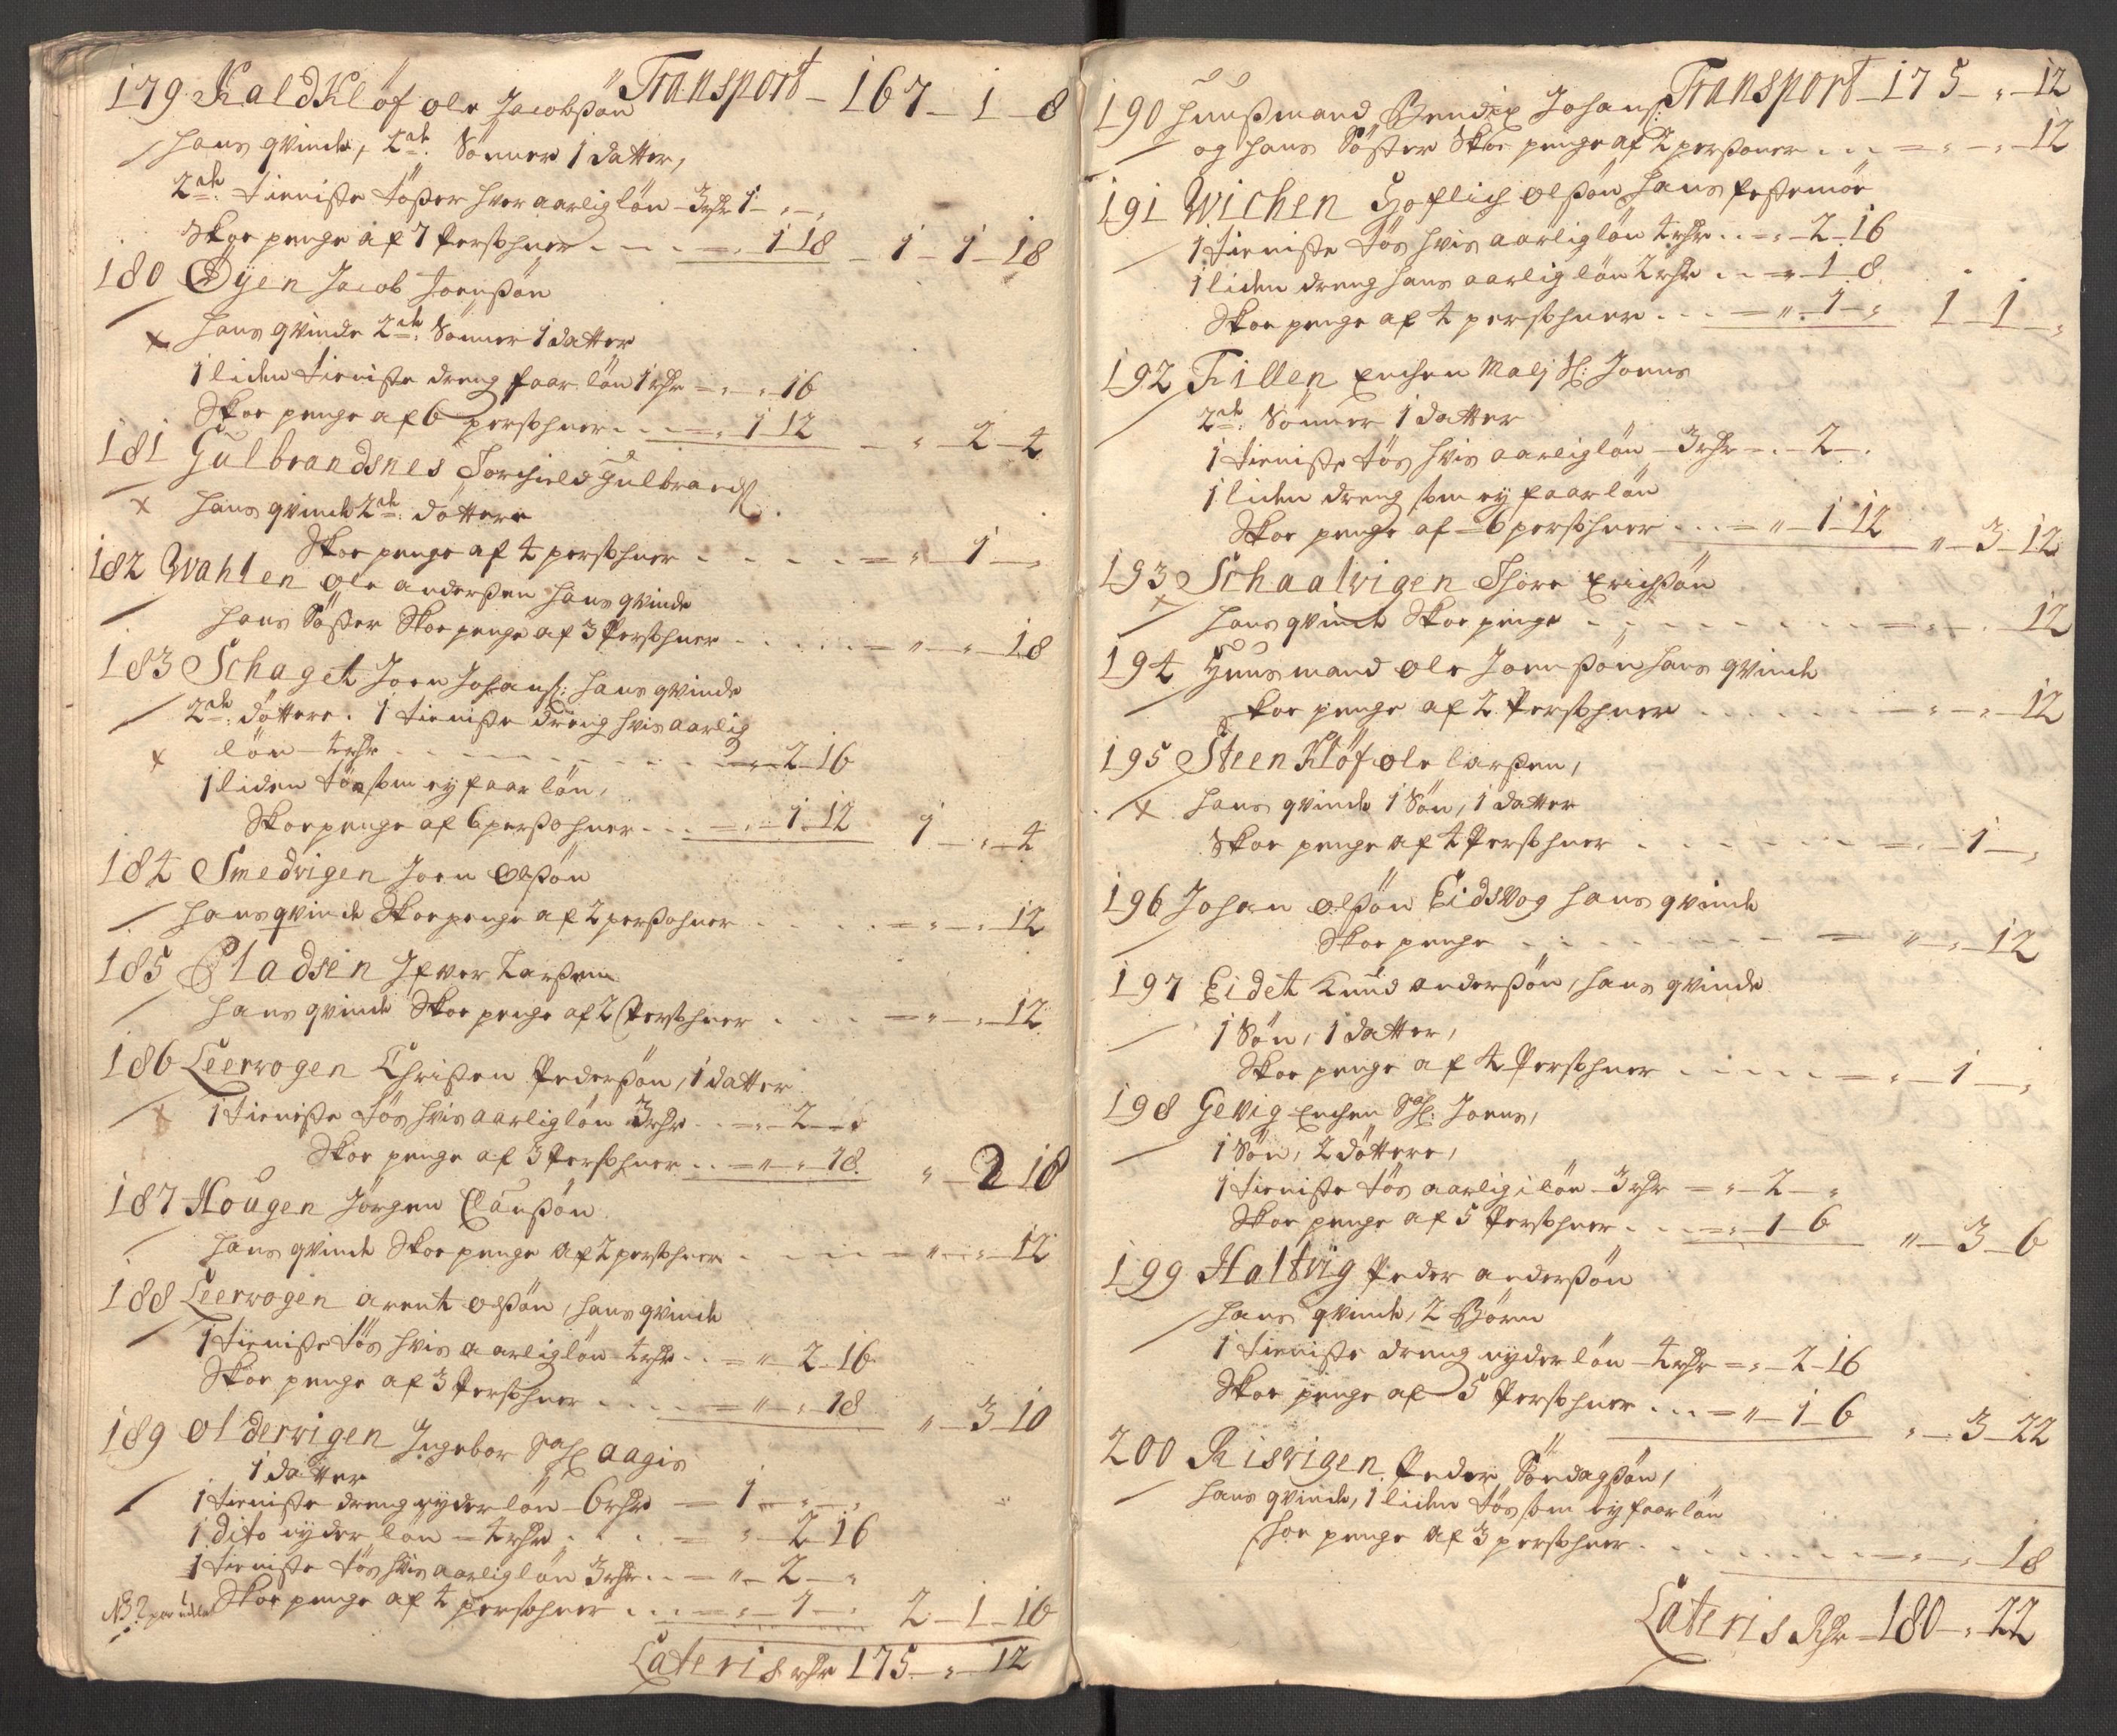 Transport – 167 – 1 – 8
179 Kaldkløf Ole Jacobsøn
hans qvinde, 2de Sønner 1 datter,
2de tieniste tøser hver aarlig løn 3 rdr 1 – „ – „
Skoe penge af 7 Persohner . . . = „ 1 18 – 1 – 1 – 18
180 Øyen Jacob Joensøn
hans qvinde 2de Sønner 1 datter
1 liden tieniste dreng faar løn 1 rdr = „ – „ 16
Skoe penge af 6 persohner . . . = „ 1 12 – „ – 2 – 4
181 Gulbrandsnes Torchield Gulbrands:
hans qvinde 2de døttere
Skoe penge af 4 persohner . . . . = „ – 1 – „
182 Wahlen Ole andersen hans qvinde
hans Søster Skoe penge af 3 Persohner . . . . = „ – „ – 18
183 Schaget Joen Johans: hans qvinde
2de døttere. 1 tieniste dreng hvis aarlig
løn – 4 rdr . . . . . . = „ – 2 – 16
1 liden tøs som ey faar løn,
Skoe penge af 6 persohner . . . = „ – 1 – 12 1 – „ – 4
184 Smedvigen Joen Olsøn
hans qvinde Skoe penge af 2 persohner . . . . = „ – „ – 12
185 Pladsen Ifver Larsen
hans qvinde Skoe penge af 2 Persohner . . . = „ – „ – 12
186 Leervogen Christen Pedersøn, 1 datter
1 tieniste tøs hvis aarlig løn 3 rdr . . = „ – 2 – „
Skoe penge af 3 Persohner . . = „ – „ – 18 „ – 2 18
187 Hougen Jørgen Clausøn
hans qvinde Skoe penge af 2 persohner . . . . = „ – „ – 12
188 Leervogen arent olsøn, hans qvinde
1 tieniste tøs hvis aarlig løn 4 rdr . . = „ – 2 – 16
Skoe penge af 3 Persohner . . . . = „ – „ – 18 „ – 3 – 10
189 Oldervigen Ingebor Sal: aagis
1 datter
1 tieniste dreng nyder løn – 6 rdr = 1 – „ – „
1 dito nyder løn – 4 rdr . . . = „ – 2 – 16
1 tieniste tøs hvis aarlig løn 3 rdr . . = „ – 2 – „
Skoe penge af 4 persohner . . . = „ – 1 – „ 2 – 1 – 16
Lateris rdr 175 – „ – 12
Transport – 175 – „ – 12
190 huusmand Bendix Johans:
og hans Søster Skoe penge af 2 persohner . . . = „ – „ – 12
191 Wichen Hoflich olsøn hans festemøe
1 tieniste tøs hvis aarlig løn 4 rdr . . = „ – 2 – 16
1 liden dreng hans aarlig løn 2 rdr . . = „ – 1 – 8
Skoe penge af 4 persohner . . . = „ – 1 – „ 1 – 1 – „
192 Tillen Enchen Malj Sl: Joens
2de Sønner 1 datter
1 tieniste tøs hvis aarlig løn – 3 rdr = „ – 2 – „
1 liden dreng som ey faar løn
Skoe penge af – 6 persohner . . . = „ – 1 – 12 „ – 3 – 12
193 Schaalvigen Thore Erichsøn
hans qvinde Skoe penge . . . . . . = „ – „ 12
194 Huusmand Ole Joensøn hans qvinde
Skoe penge af 2 Persohner . . . . . = „ – „ – 12
195 Steenkløf ole larsen,
hans qvinde 1 Søn, 1 datter
Skoe penge af 4 Persohner . . . . . = „ – 1 – „
196 Johan olsøn Eidsvog hans qvinde
Skoe penge . . . . . . = „ – „ – 12
197 Eidet Knud andersøn, hans qvinde
1 Søn, 1 datter,
Skoe penge af 4 Persohner . . . . . = „ – 1 – „
198 Gevig Enchen Sal: Joens,
1 Søn, 2 døttere,
1 tieniste tøs aarlig i løn – 3 rdr = „ – 2 – „
Skoe penge af 5 Persohner . . . = „ – 1 – 6 „ – 3 – 6
199 Haltvig Peder andersøn
hans qvinde, 2 Børn
1 tieniste dreng nyder løn – 4 rdr = „ – 2 – 16
Skoe penge af 5 Persohner . . . = „ – 1 – 6 „ – 3 – 22
200 Risvigen Peder Søndagsøn,
hans qvinde, 1 liden tøs som ey faar løn
skoe penge af 3 persohner . . . . . . = „ – „ – 18
Lateris Rdr – 180 – „ 22